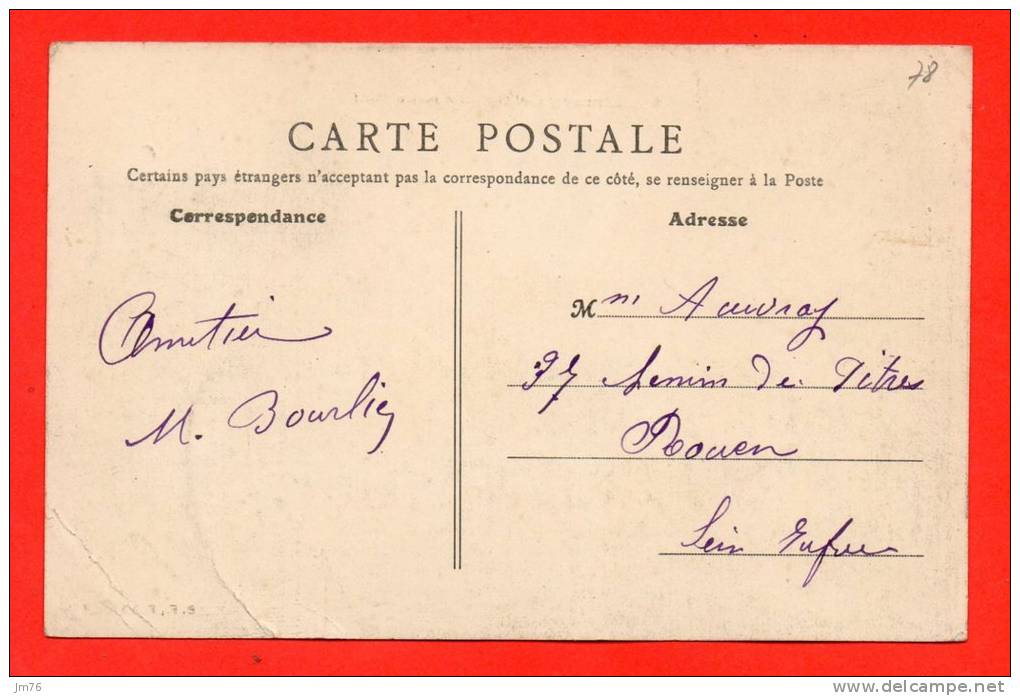 78
CARTE POSTALE
Certains pays étrangers n'acceptant pas la correspondance de ce côté, se renseigner à la Poste
Correspondance
M. Bourlier
Adresse
Mm Auvray
37 de
Rouen
jm76
www.delcampe.net